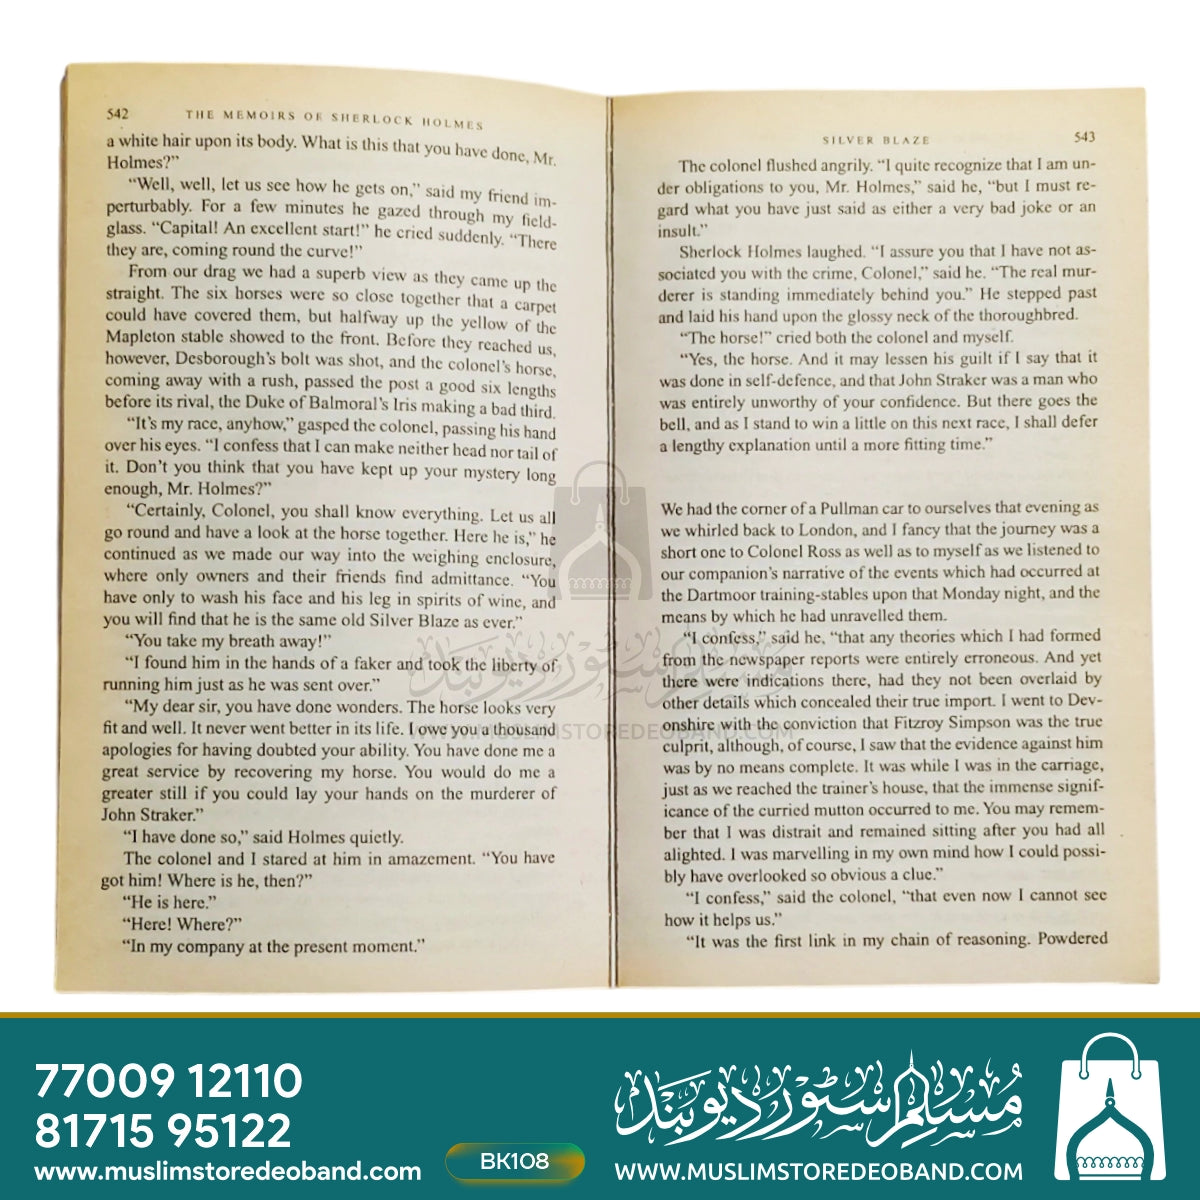 542 THE MEMOIRS OF SHERLOCK HOLMES
a white hair upon its body. What is this that you have done, Mr.
Holmes?”
“Well, well, let us see how he gets on,” said my friend im-
perturbably. For a few minutes he gazed through my field-
glass. “Capital! An excellent start!” he cried suddenly. “There
they are, coming round the curve!”
From our drag we had a superb view as they came up the
straight. The six horses were so close together that a carpet
could have covered them, but halfway up the yellow of the
Mapleton stable showed to the front. Before they reached us,
however, Desborough’s bolt was shot, and the colonel’s horse,
coming away with a rush, passed the post a good six lengths
before its rival, the Duke of Balmoral’s Iris making a bad third.
“It’s my race, anyhow,” gasped the colonel, passing his hand
over his eyes. “I confess that I can make neither head nor tail of
it. Don’t you think that you have kept up your mystery long
enough, Mr. Holmes?”
“Certainly, Colonel, you shall know everything. Let us all
go round and have a look at the horse together. Here he is,” he
continued as we made our way into the weighing enclosure,
where only owners and their friends find admittance. “You
have only to wash his face and his leg in spirits of wine, and
you will find that he is the same old Silver Blaze as ever.”
“You take my breath away!”
“I found him in the hands of a faker and took the liberty of
running him just as he was sent over.”
“My dear sir, you have done wonders. The horse looks very
fit and well. It never went better in its life. I owe you a thousand
apologies for having doubted your ability. You have done me a
great service by recovering my horse. You would do me a
greater still if you could lay your hands on the murderer of
John Straker.”
“I have done so,” said Holmes quietly.
The colonel and I stared at him in amazement. “You have
got him! Where is he, then?”
“He is here.”
“Here! Where?”
“In my company at the present moment.”
SILVER BLAZE 543
The colonel flushed angrily. “I quite recognize that I am un-
der obligations to you, Mr. Holmes,” said he, “but I must re-
gard what you have just said as either a very bad joke or an
insult.”
Sherlock Holmes laughed. “I assure you that I have not as-
sociated you with the crime, Colonel,” said he. “The real mur-
derer is standing immediately behind you.” He stepped past
and laid his hand upon the glossy neck of the thoroughbred.
“The horse!” cried both the colonel and myself.
“Yes, the horse. And it may lessen his guilt if I say that it
was done in self-defence, and that John Straker was a man who
was entirely unworthy of your confidence. But there goes the
bell, and as I stand to win a little on this next race, I shall defer
a lengthy explanation until a more fitting time.”
We had the corner of a Pullman car to ourselves that evening as
we whirled back to London, and I fancy that the journey was a
short one to Colonel Ross as well as to myself as we listened to
our companion’s narrative of the events which had occurred at
the Dartmoor training-stables upon that Monday night, and the
means by which he had unravelled them.
“I confess,” said he, “that any theories which I had formed
from the newspaper reports were entirely erroneous. And yet
there were indications there, had they not been overlaid by
other details which concealed their true import. I went to Dev-
onshire with the conviction that Fitzroy Simpson was the true
culprit, although, of course, I saw that the evidence against him
was by no means complete. It was while I was in the carriage,
just as we reached the trainer’s house, that the immense signif-
icance of the curried mutton occurred to me. You may remem-
ber that I was distrait and remained sitting after you had all
alighted. I was marvelling in my own mind how I could possi-
bly have overlooked so obvious a clue.”
“I confess,” said the colonel, “that even now I cannot see
how it helps us.”
“It was the first link in my chain of reasoning. Powdered
مسلم سٹور دیوبند
WWW.MUSLIMSTOREDEOBAND.COM
77009 12110
81715 95122
www.muslimstoredeoband.com
BK108
مُسلم سٹور دیوبند
WWW.MUSLIMSTOREDEOBAND.COM